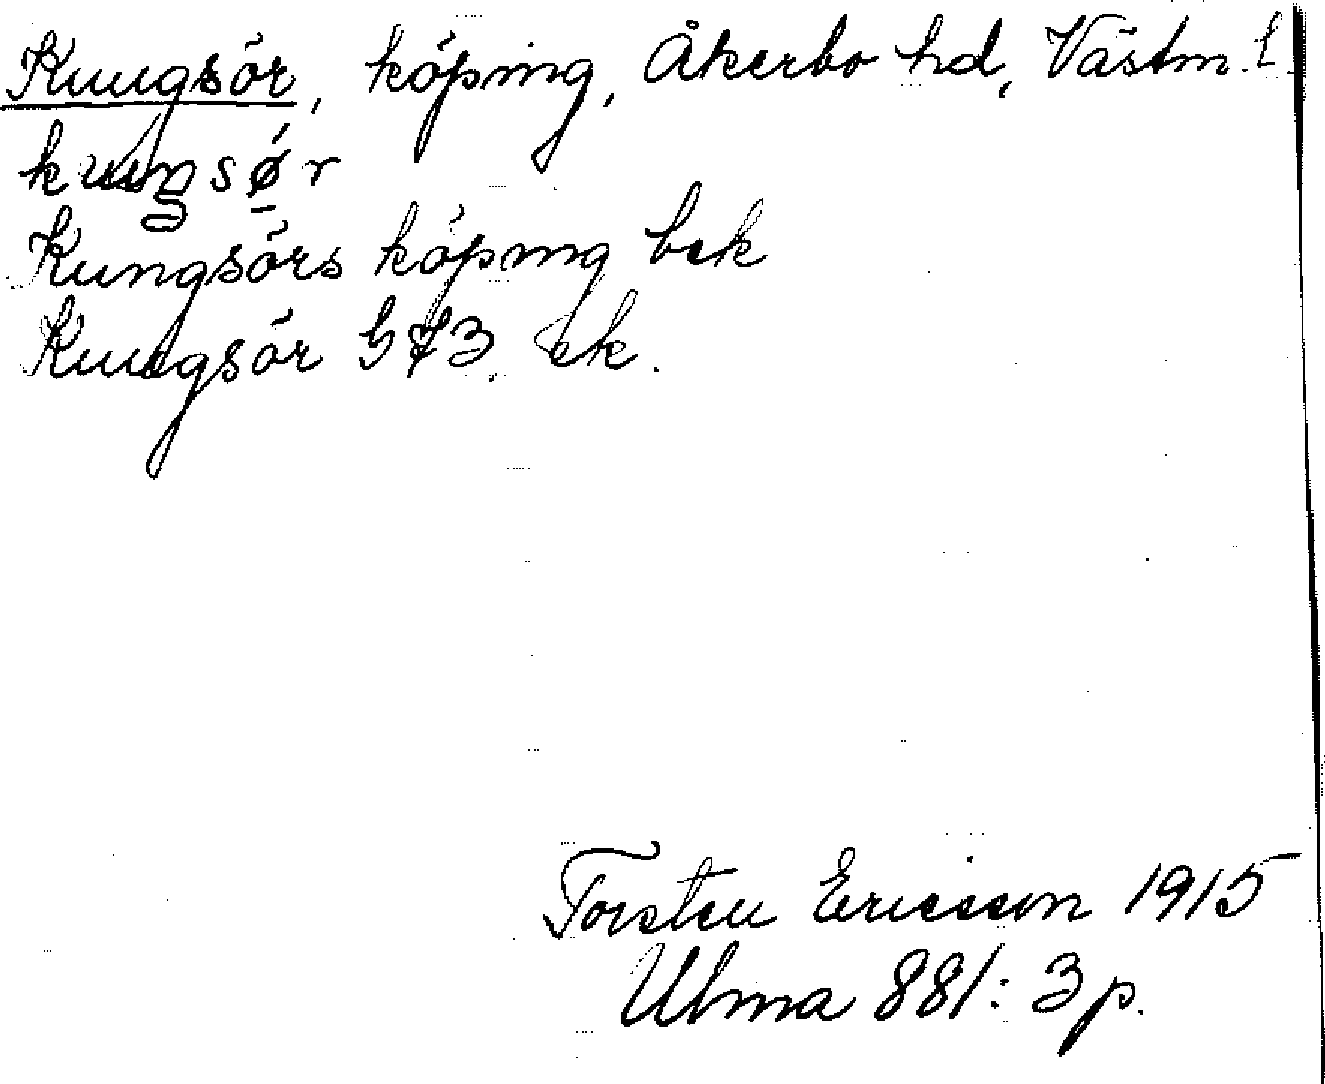 Kungsör, köping, Åkerbo hd, Västm. l.
kuŋsǿ̱r
Kungsörs köping bek
Kungsör G73. ek.
Torsten Ericsson 1915
Ulma 881: 3 p.